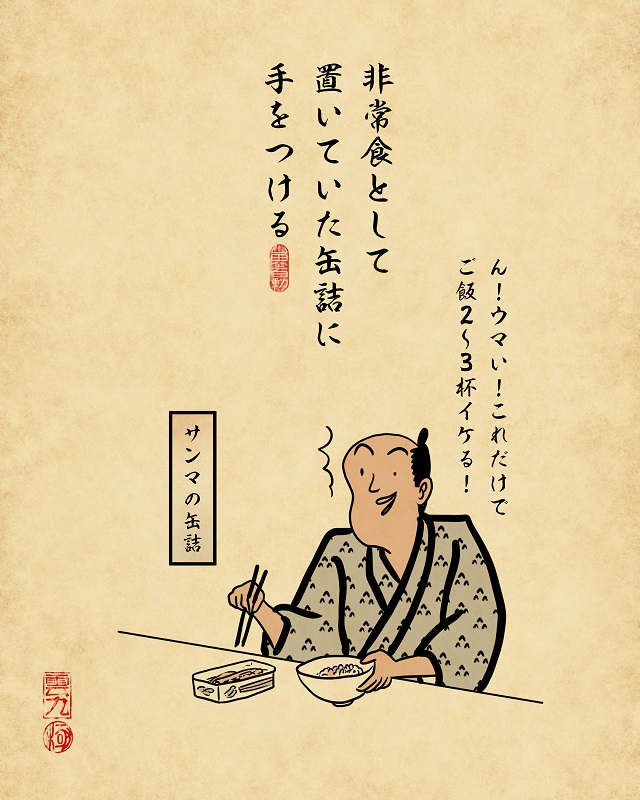 非常食として
置いていた缶詰に
手をつける
ん！ウマい！これだけで
ご飯2〜3杯イケる！
サンマの缶詰